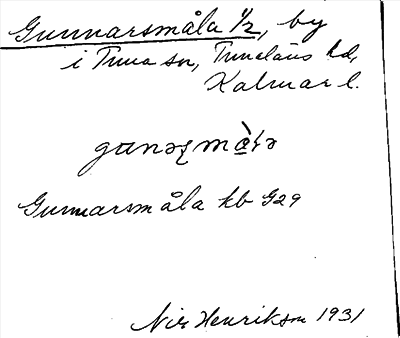 Gunnarsmåla 1/2, by
i Tuna sn, Tunaläns hd,
Kalmar l.
Gunnarsmåla kb G29
Nils Henrikson 1931